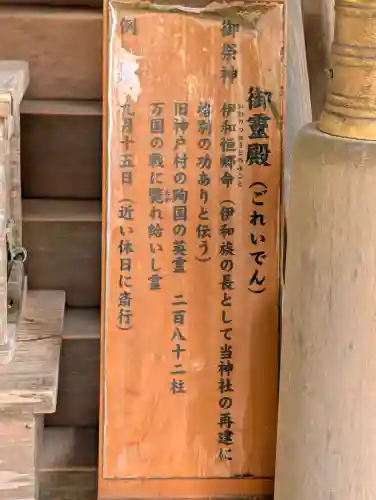 御霊殿（ごれいでん）
御祭神 伊和恒郷命（伊和族の長として当神社の再建に
格別の功ありと伝う）
旧神戸村の殉国の英霊 二百八十二柱
万国の戦に斃れ給いし霊
例 九月十五日（近い休日に斎行）